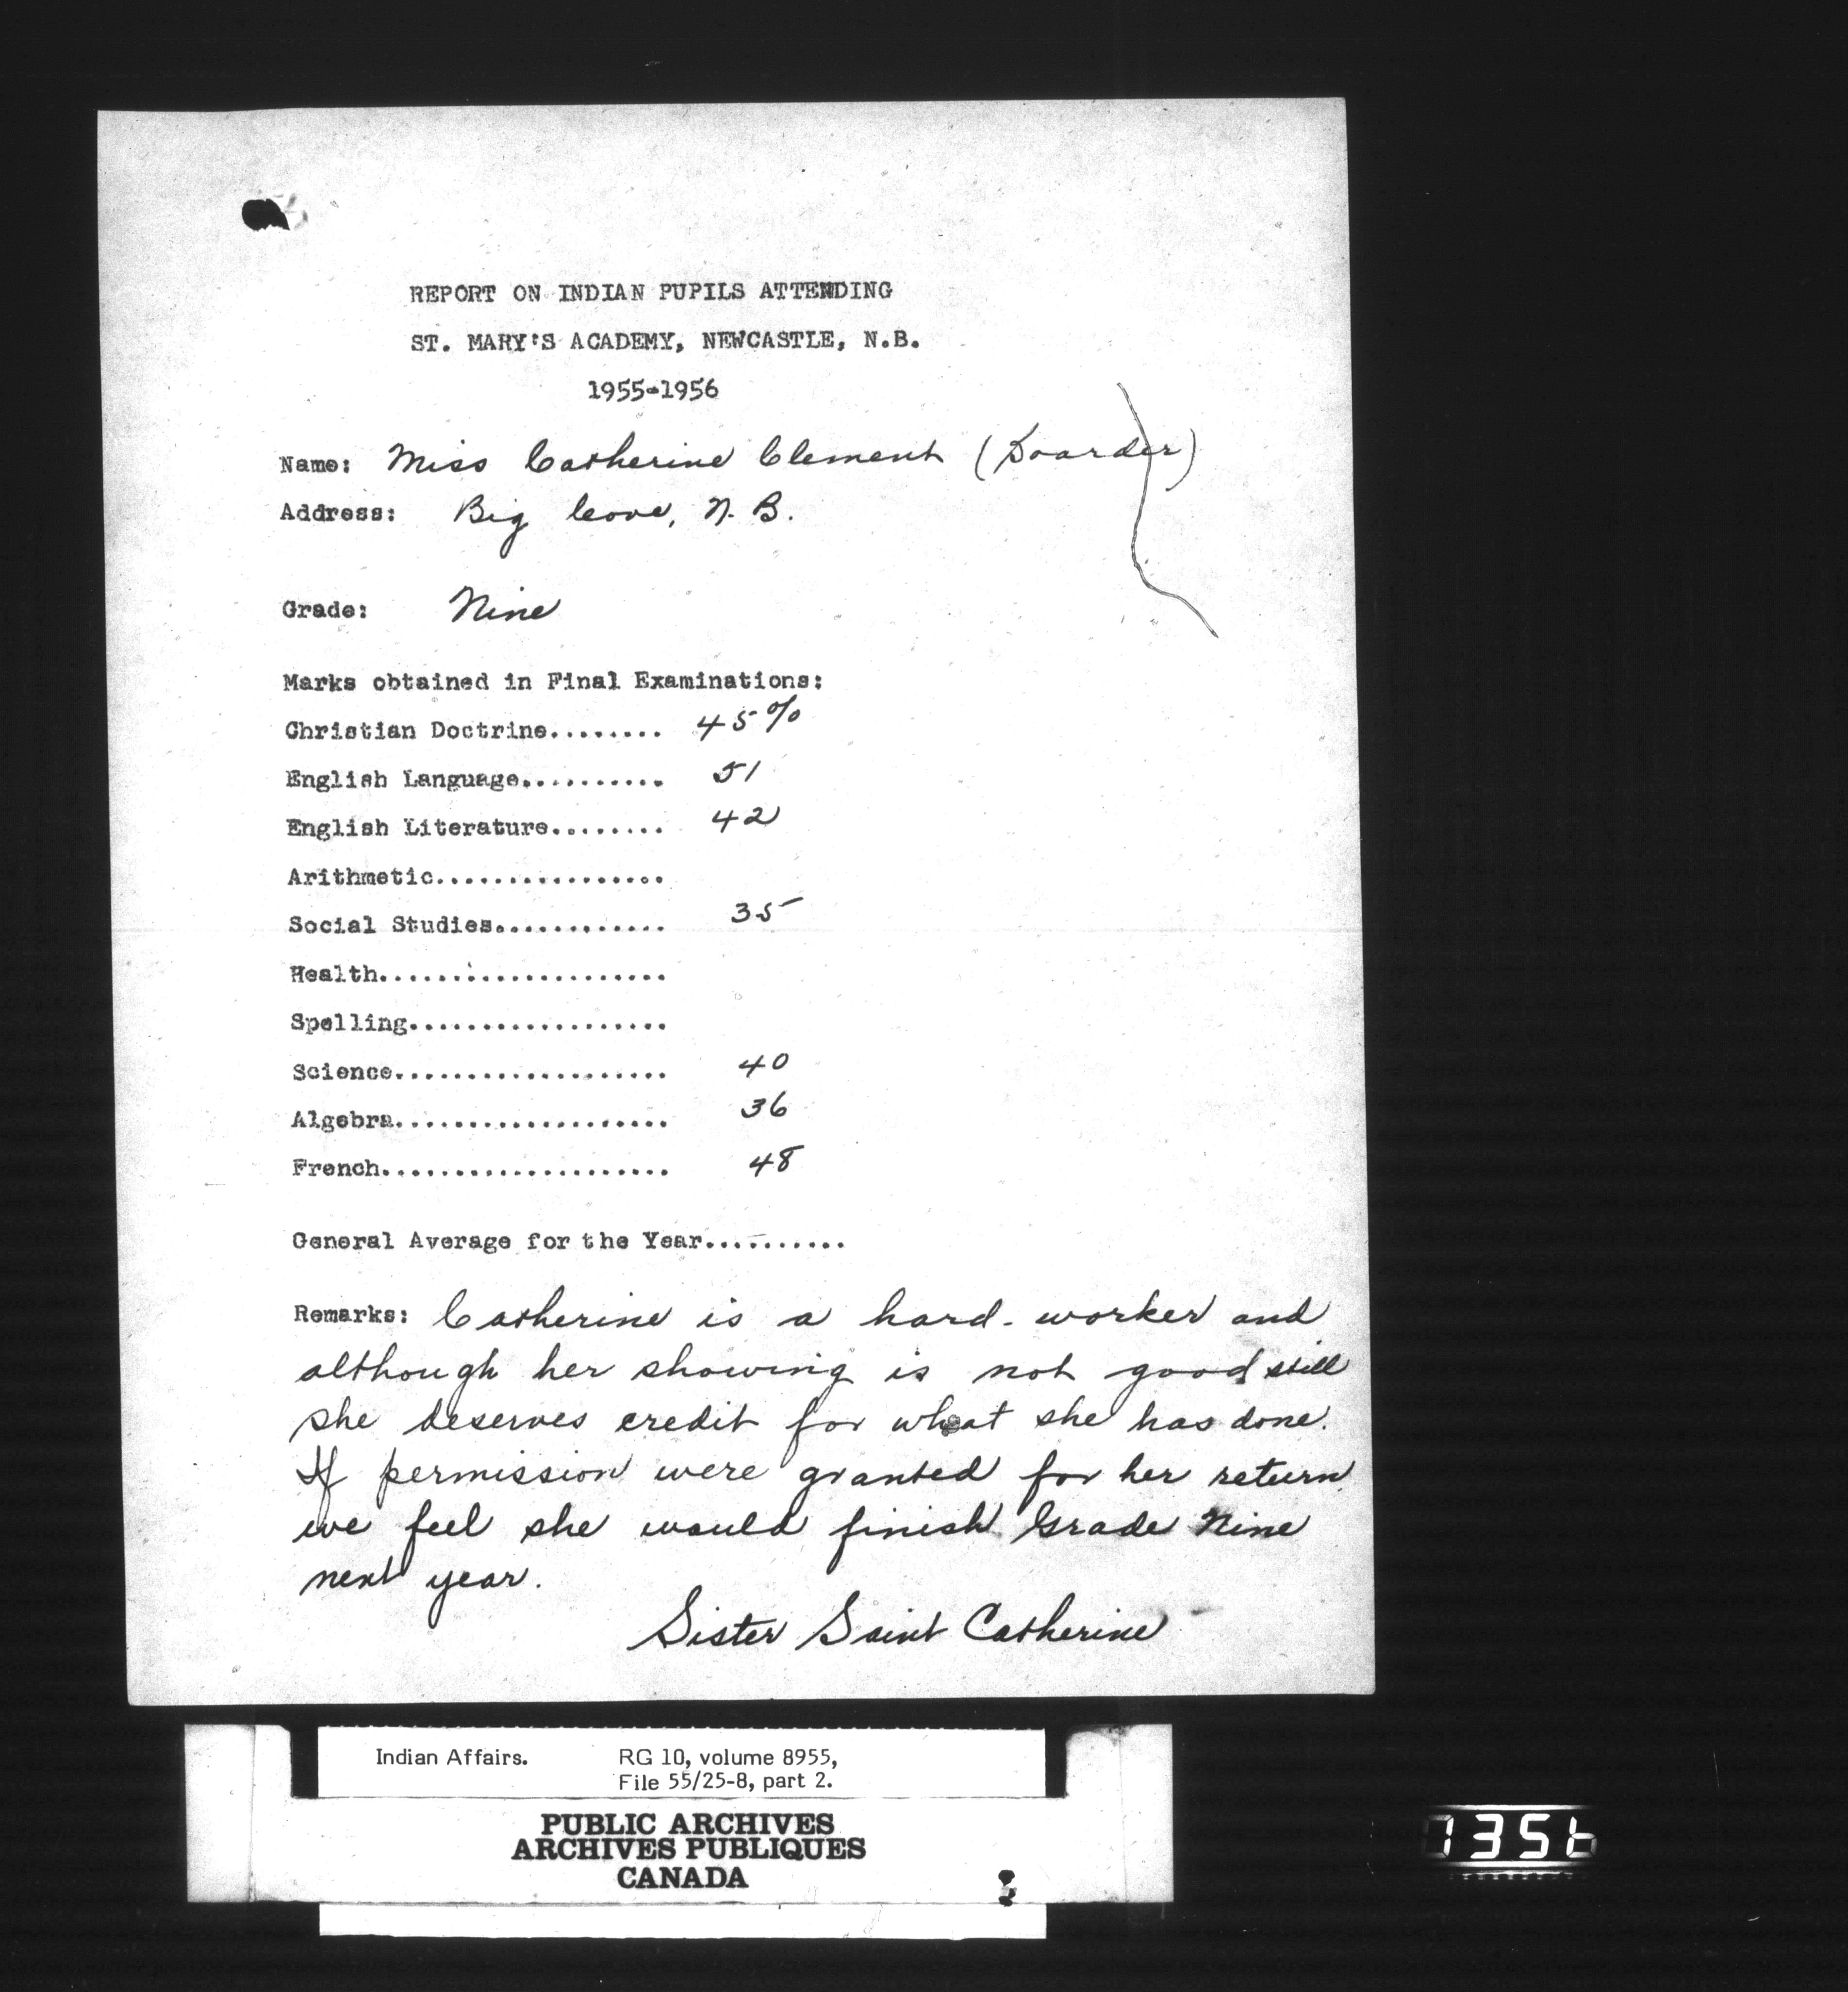 REPORT ON INDIAN PUPILS ATTENDING
ST. MARY'S ACADEMY, NEWCASTLE, N.B.
1955-1956
Name: Miss Catherine Clement (Boarder)
Address: Big Cove, N.B.
Grade: Nine
Marks obtained in Final Examinations:
Christian Doctrine........ 45%
English Language.......... 51
English Literature........ 42
Arithmetic................
Social Studies............ 35
Health....................
Spelling..................
Science................... 40
Algebra................... 36
French.................... 48
General Average for the Year..........
Remarks: Catherine is a hard-worker and
although her showing is not good still
she deserves credit for what she has done.
If permission were granted for her return
we feel she would finish Grade Nine
next year.
Sister Saint Catherine
Indian Affairs. RG 10, volume 8955,
File 55/25-8, part 2.
PUBLIC ARCHIVES
ARCHIVES PUBLIQUES
CANADA